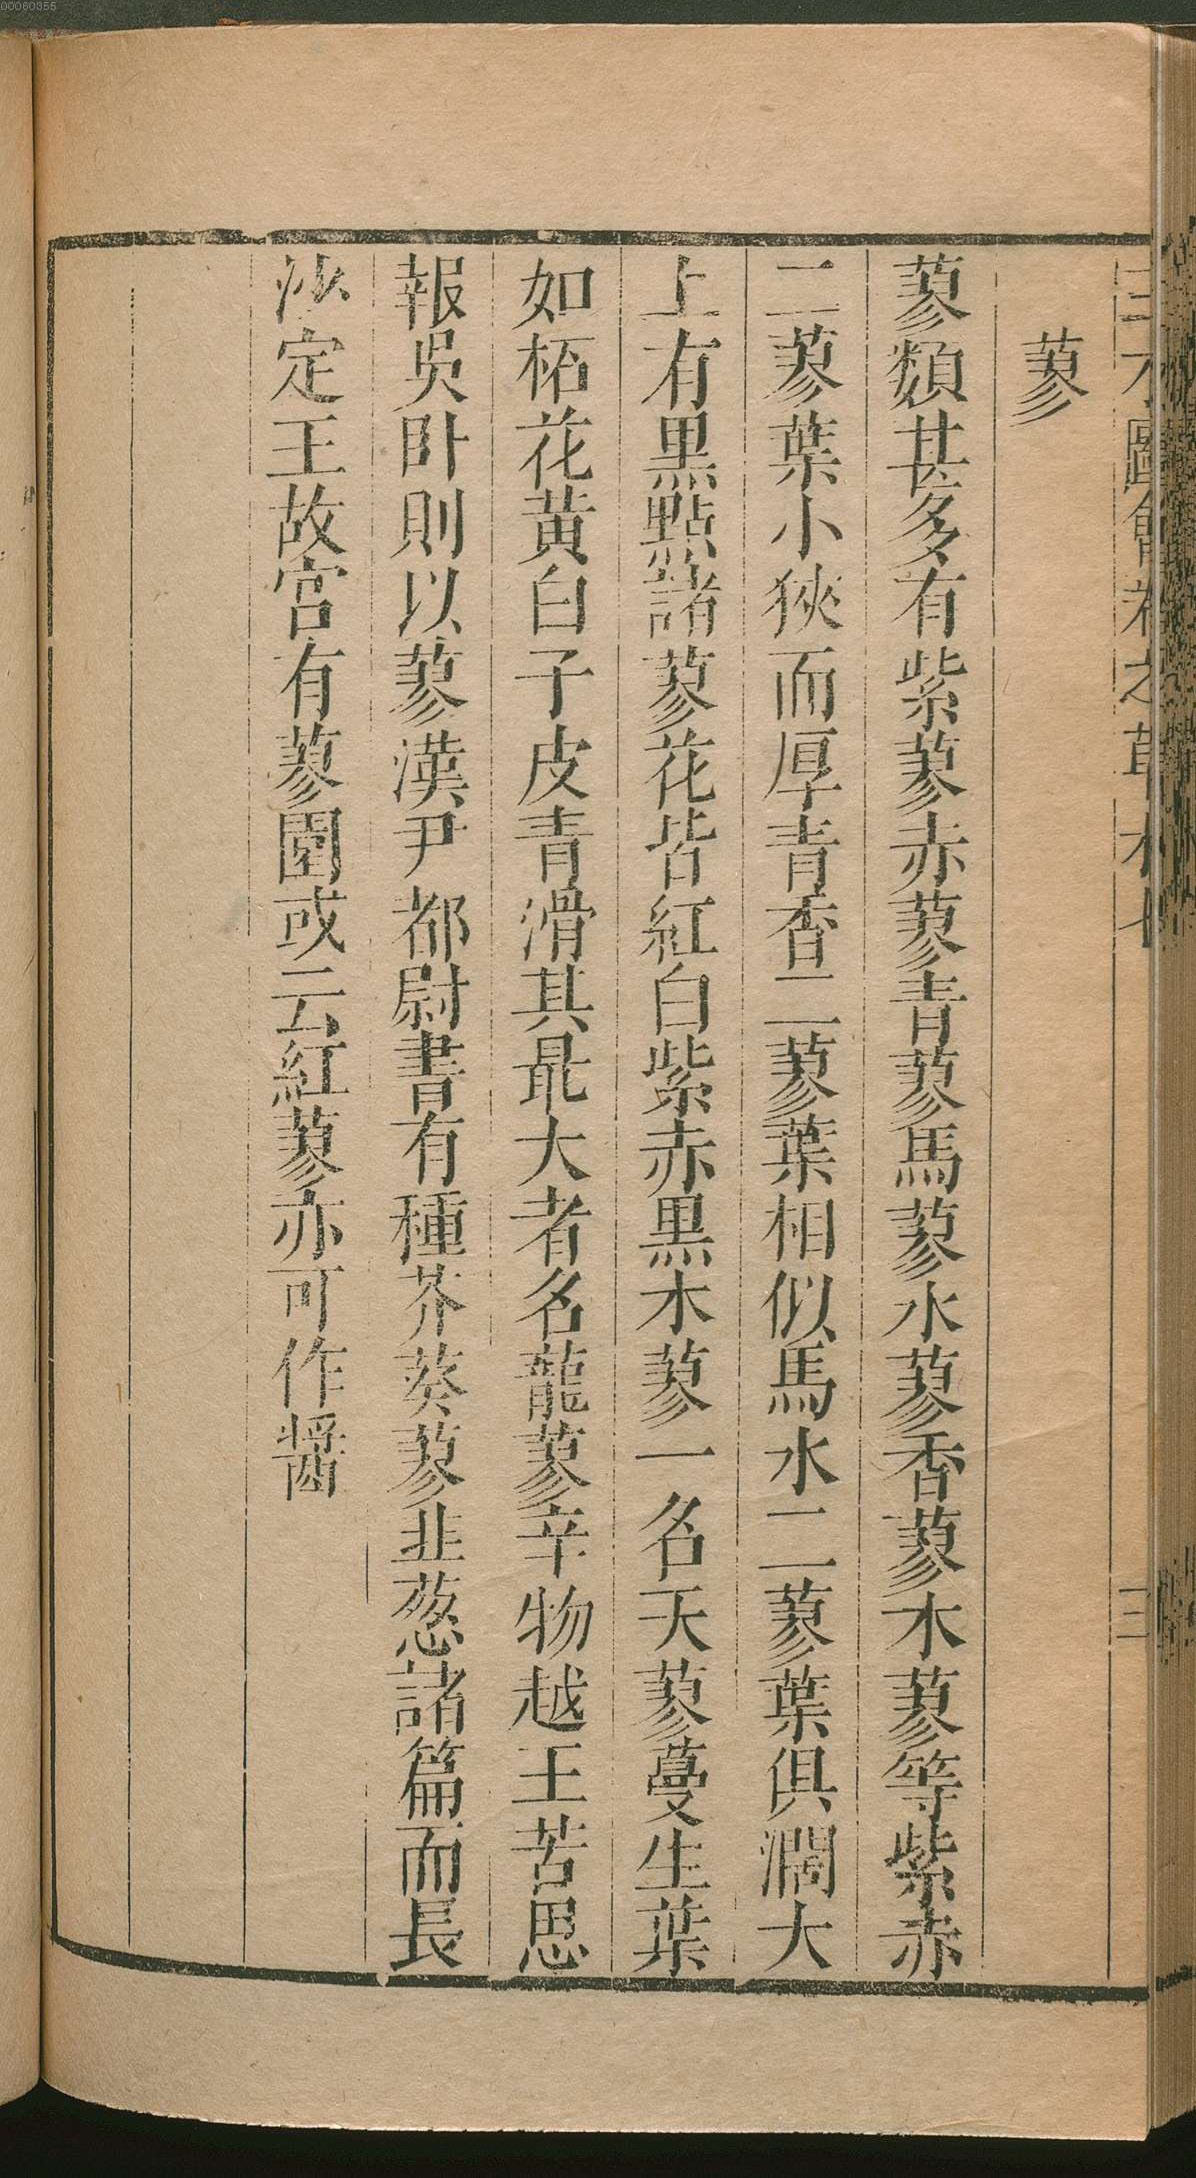 00060355
三才圖會卷之草木七
三
蓼
蓼類甚多有紫蓼赤蓼青蓼馬蓼水蓼香蓼木蓼等紫赤
二蓼葉小狹而厚青香二蓼葉相似馬水二蓼葉俱濶大
上有黒點諸蓼花皆紅白紫赤黒木蓼一名天蓼蔓生葉
如柘花黃白子皮青滑其最大者名蘢蓼辛物越王苦思
報吳卧則以蓼漢尹都尉書有種芥葵蓼韭葱諸篇而長
沙定王故宮有蓼園或云紅蓼亦可作醬